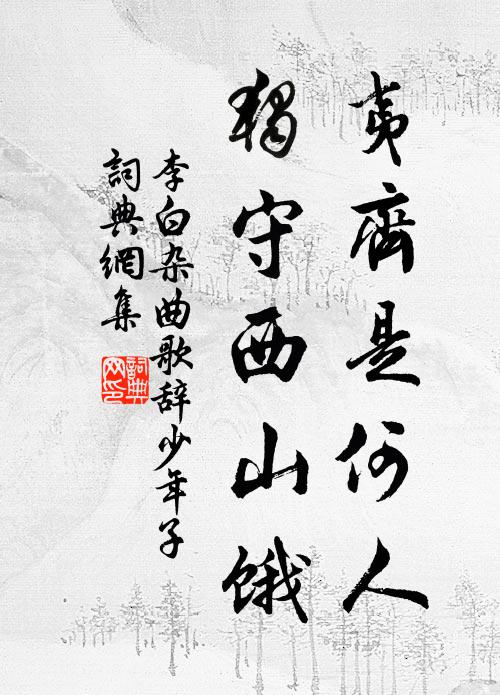 夷齊是何人
獨守西山餓
李白杂曲歌辞少年子
詞典網集
詞典
网印